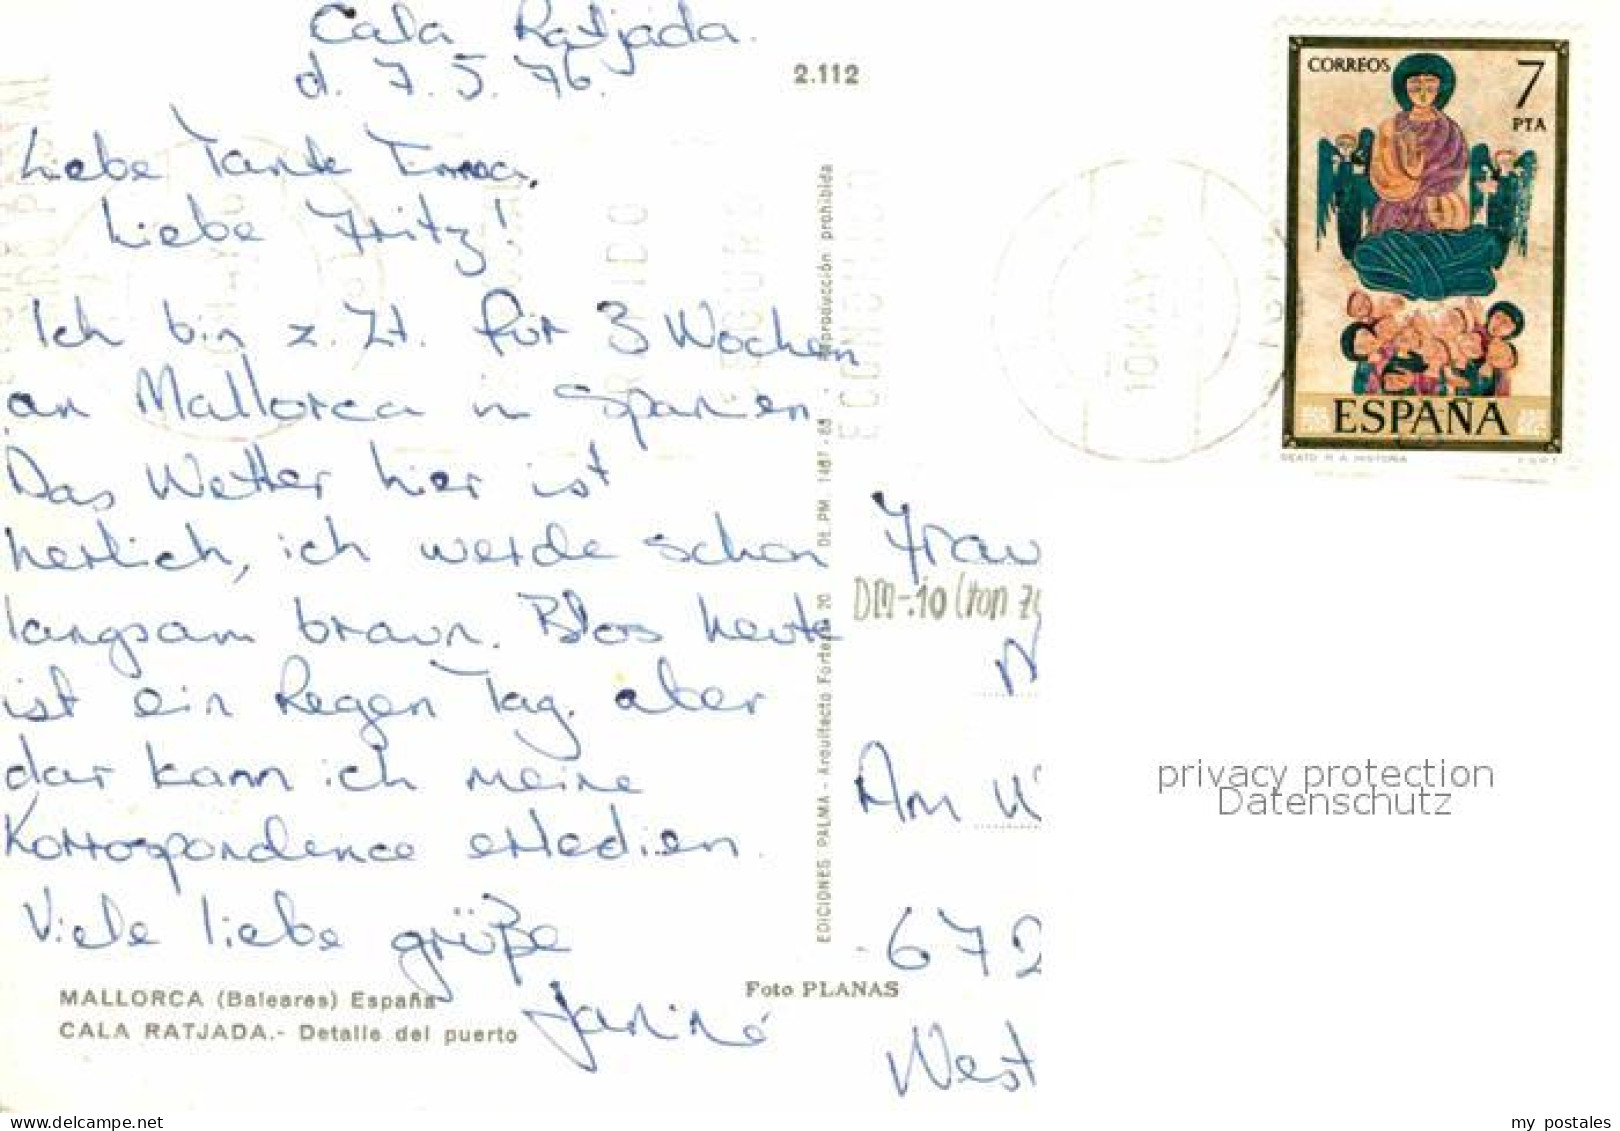 Cala Ratjada.
d. 7.5.76.
2.112
Liebe Tante Erna,
Liebe Fritz!
Ich bin z. Zt. für 3 Wochen
an Mallorca in Spanien
Das Wetter hier ist
herlich, ich werde schon
langsam braun. Blos heute
ist ein Regen Tag. aber
dar kann ich meine
Korrospondence erledien.
Viele liebe grüße
Janiné
MALLORCA (Baleares) España
CALA RATJADA.- Detalle del puerto
Foto PLANAS
EDICIONES PALMA - Arquitecto Forteza, 20 DE. PM. 1487 - 68 - Reproducción prohibida
10 MAY
CORREOS
7
PTA
ESPAÑA
BEATO R. A. HISTORIA
Frau
DM-.10 (von
Am
672
West
privacy protection
Datenschutz
my postales